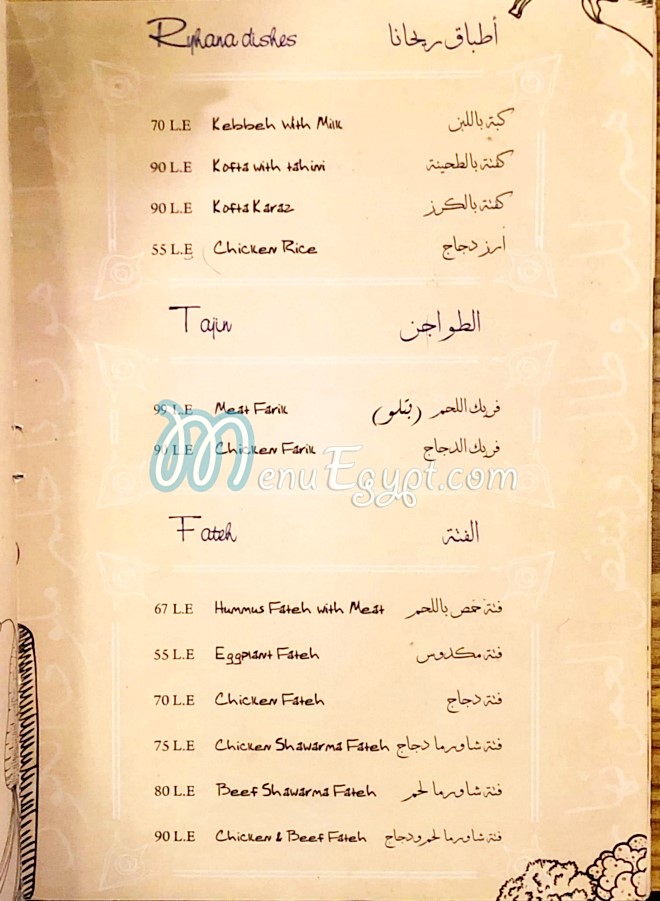 Ryhana dishes أطباق ريحانا
70 L.E Kebbeh with Milk كبة باللبن
90 L.E Kofta with tahini كفتة بالطحينة
90 L.E Kofta Karaz كفتة بالكرز
55 L.E Chicken Rice أرز دجاج
Tajin الطواجن
99 L.E Meat Farik فريك اللحم (بتلو)
90 L.E Chicken Farik فريك الدجاج
MenuEgypt.com
Fateh الفتة
67 L.E Hummus Fateh with Meat فتة حمص باللحم
55 L.E Eggplant Fateh فتة مكدوس
70 L.E Chicken Fateh فتة دجاج
75 L.E Chicken Shawarma Fateh فتة شاورما دجاج
80 L.E Beef Shawarma Fateh فتة شاورما لحم
90 L.E Chicken & Beef Fateh فتة شاورما لحم ودجاج